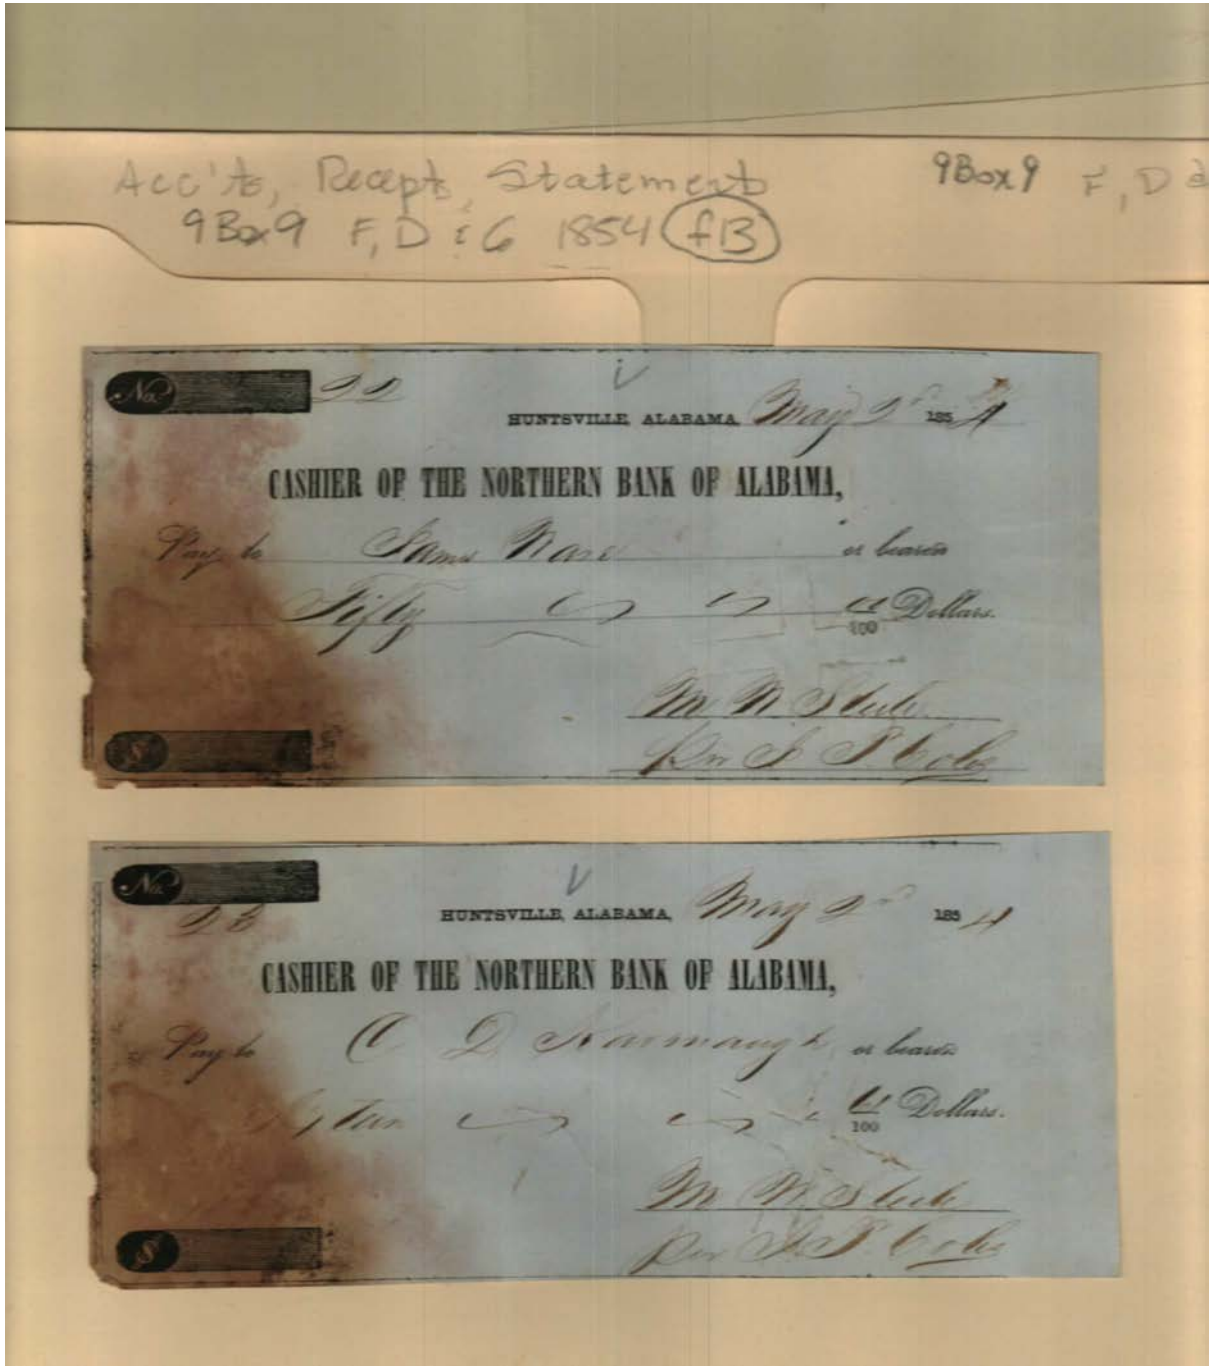 Acc'ts, Recepts, Statements
9Box9 F, D & G 1854 f13
9Box9 F, D &
No. 22
HUNTSVILLE, ALABAMA, May 2nd 1854
CASHIER OF THE NORTHERN BANK OF ALABAMA,
Pay to James Ware or bearer
Fifty 00/100 Dollars.
M W Steele
per J P Coles
No.
HUNTSVILLE, ALABAMA, May 2nd 1854
23
CASHIER OF THE NORTHERN BANK OF ALABAMA,
Pay to C D Kavanaugh or bearer
00/100 Dollars.
M W Steele
per J P Coles
$